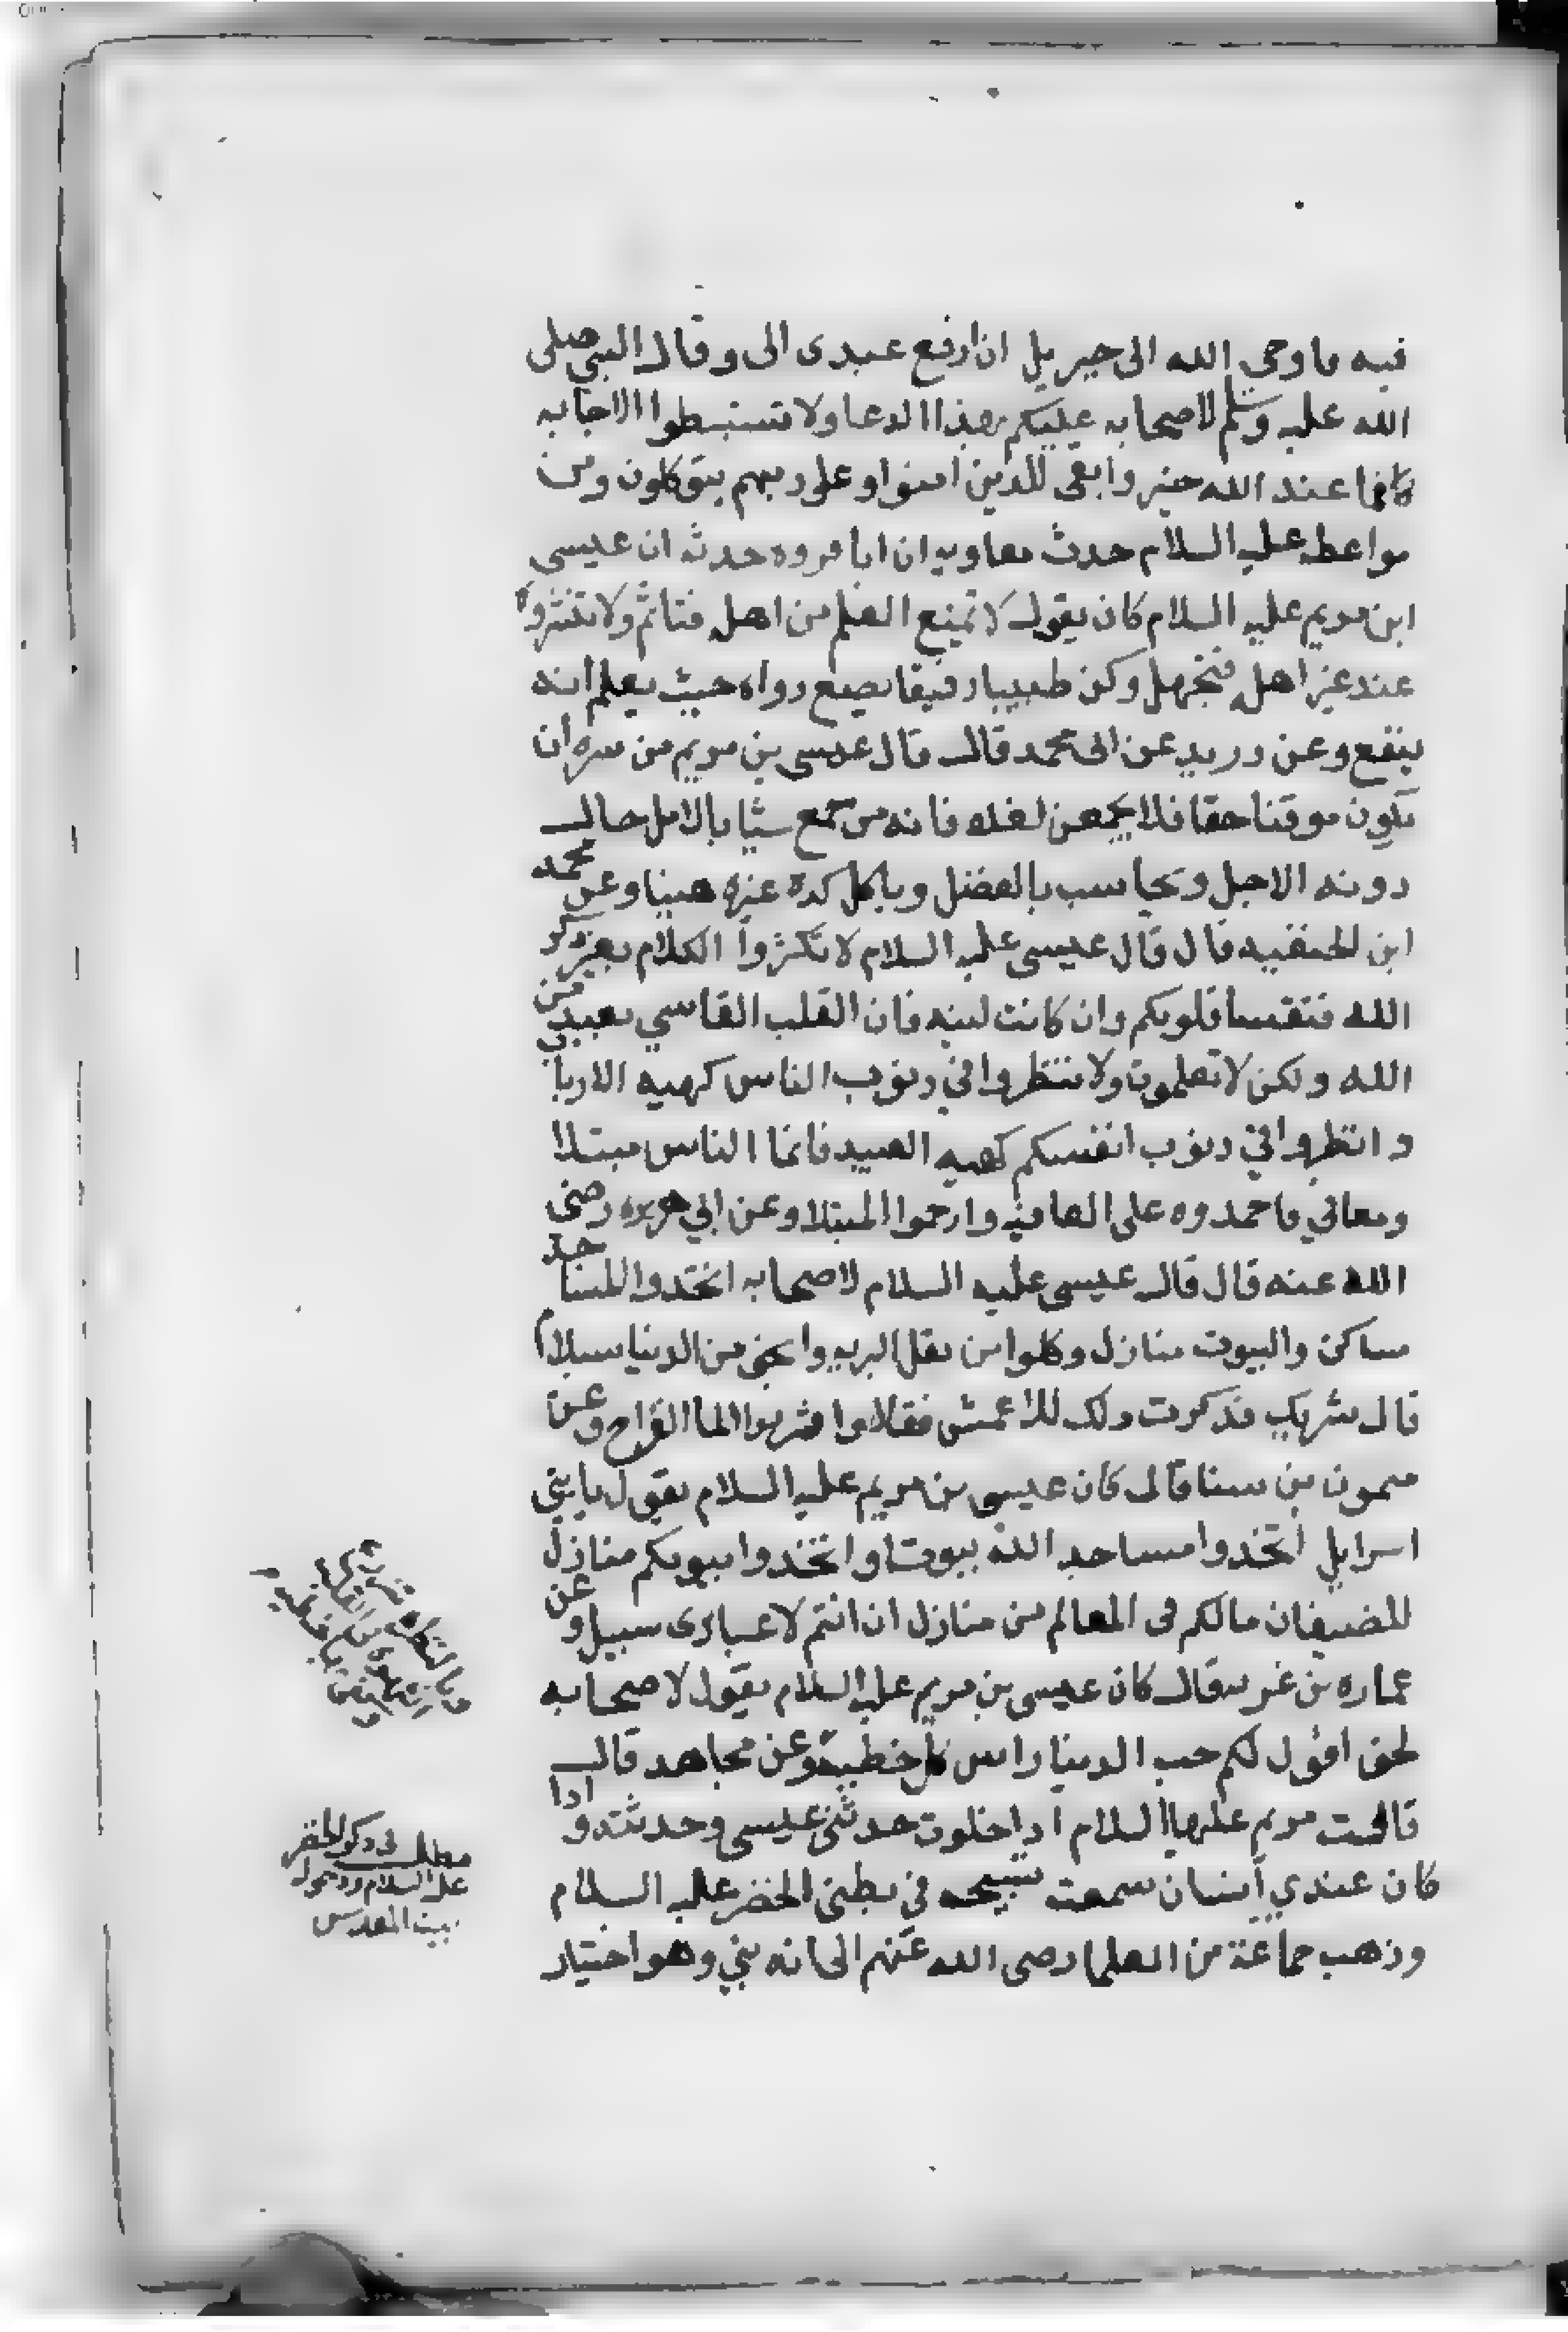 فيه فاوحى الله الى جبريل ان ارفع عبدى الى وقال النبي صلى
الله عليه وسلم لاصحابه عليكم بهذا الدعا ولا تستبطوا الاجابه
فانما عند الله خير وابقى للذين امنوا وعلى ربهم يتوكلون ومن
مواعظه عليه السلام حدث معاويه ان ابا فروه حدثه ان عيسى
ابن مريم عليه السلام كان يقول لا تمنع العلم من اهله فتاثم ولا تنثروه
عند غير اهله فتجهل وكن طبيبا رفيقا يضع دواه حيث يعلم انه
ينفع وعن دريد عن ابى محمد قال قال عيسى بن مريم من سره ان
يكون موقنا حقا فلا يجمعن لغله فانه من جمع شيا بالامل حال
دونه الاجل ويحاسب بالفضل وياكل كده غيره هنيا وعن محمد
ابن الحنفيه قال قال عيسى عليه السلام لا تكثروا الكلام بغير ذكر
الله فتقسا قلوبكم وان كانت لينه فان القلب القاسي بعيد من
الله ولكن لا تعلمون ولا تنظروا في ذنوب الناس كهيه الاربا
وانظروا في ذنوب انفسكم كهيه العبيد فانما الناس مبتلا
ومعافي فاحمدوه على العافيه وارحموا المبتلا وعن ابي هريره رضى
الله عنه قال قال عيسى عليه السلام لاصحابه اتخدوا المساجد
مساكن والبيوت منازل وكلوا من بقل البريه وانجى من الدنيا بسلام
قال شريك فذكرت ذلك للاعمش فقال واشربوا الما القراح وعن
ميمون بن سنا قال كان عيسى بن مريم عليه السلام يقول يا بنى
اسرايل اتخدوا مساجد الله بيوتا واتخدوا بيوتكم منازل
للضيفان مالكم فى العالم من منازل ان انتم لا عبارى سبيل وعن
عماره بن غر قال كان عيسى بن مريم عليه السلام يقول لاصحابه
لحق اقول لكم حب الدنيا راس كل خطيية وعن مجاهد قال
قالت مريم عليها السلام ادا خلوت حدثنى عيسى وحدثته وادا
كان عندي انسان سمعت تسبيحه في بطنى الخضر عليه السلام
وذهب جماعة من العلما رضى الله عنهم الى انه نبي وهو اختيار
مطلب فى دكر الخضر
عليه السلام ودخول
بيت المقدس